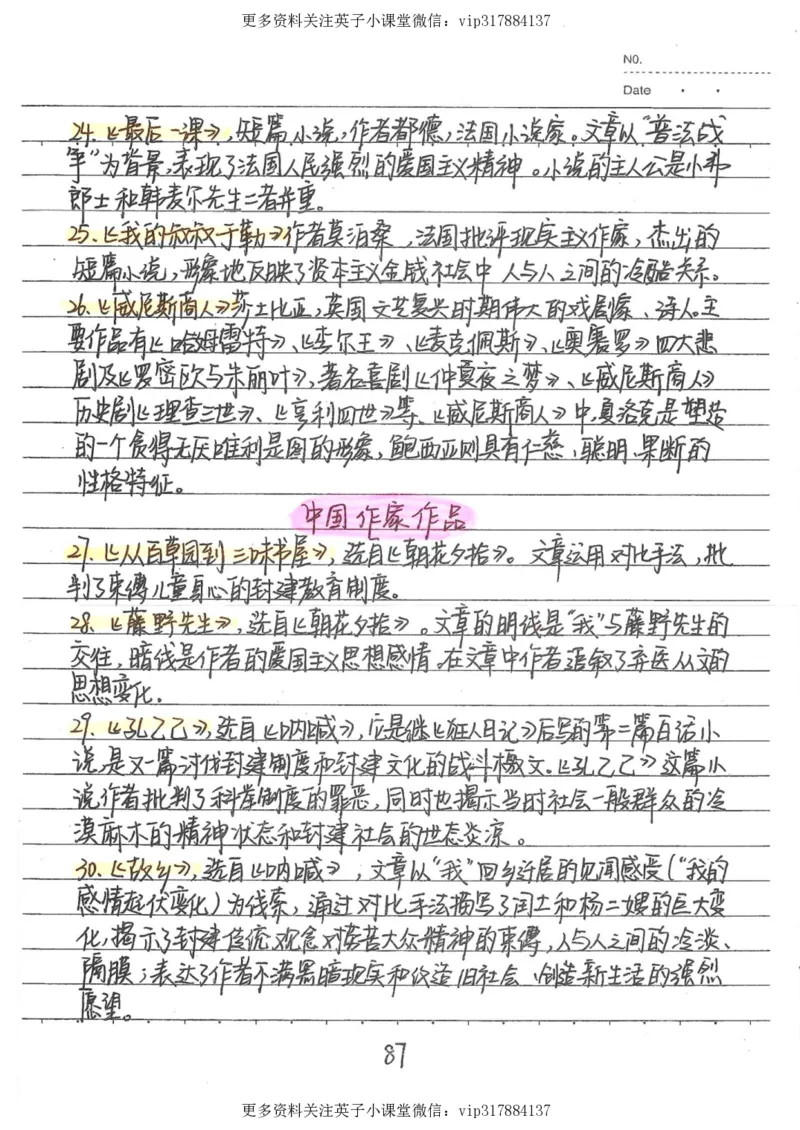 更多资料关注英子小课堂微信：vip317884137
NO.
Date
24.《最后一课》，短篇小说，作者都德，法国小说家。文章以“普法战
争”为背景，表现了法国人民强烈的爱国主义精神。小说的主人公是小弗
郎士和韩麦尔先生二者并重。
25.《我的叔叔于勒》作者莫泊桑，法国批评现实主义作家，杰出的
短篇小说，形象地反映了资本主义金钱社会中人与人之间的冷酷关系。
26.《威尼斯商人》莎士比亚，英国文艺复兴时期伟大的戏剧家、诗人。主
要作品有《哈姆雷特》、《李尔王》、《麦克佩斯》、《奥赛罗》四大悲
剧及《罗密欧与朱丽叶》，著名喜剧《仲夏夜之梦》、《威尼斯商人》
历史剧《理查三世》、《亨利四世》等、《威尼斯商人》中，夏洛克是塑造
的一个贪得无厌唯利是图的形象，鲍西亚则具有仁慈、聪明、果断的
性格特征。
中国作家作品
27.《从百草园到三味书屋》，选自《朝花夕拾》。文章运用对比手法，批
判了束缚儿童身心的封建教育制度。
28.《藤野先生》，选自《朝花夕拾》。文章的明线是“我”与藤野先生的
交往，暗线是作者的爱国主义思想感情。在文章中作者追叙了弃医从文的
思想变化.
29.《孔乙己》，选自《呐喊》，它是继《狂人日记》后写的第二篇白话小
说，是又一篇讨伐封建制度和封建文化的战斗檄文。《孔乙己》这篇小
说作者批判了科举制度的罪恶，同时也揭示当时社会一般群众的冷
漠麻木的精神状态和封建社会的世态炎凉。
30.《故乡》，选自《呐喊》，文章以“我”回乡迁居的见闻感受（“我的
感情起伏变化）为线索，通过对比手法描写了闰土和杨二嫂的巨大变
化，揭示了封建传统观念对劳苦大众精神的束缚，人与人之间的冷淡、
隔膜；表达了作者不满黑暗现实和改造旧社会、创造新生活的强烈
愿望。
87
更多资料关注英子小课堂微信：vip317884137